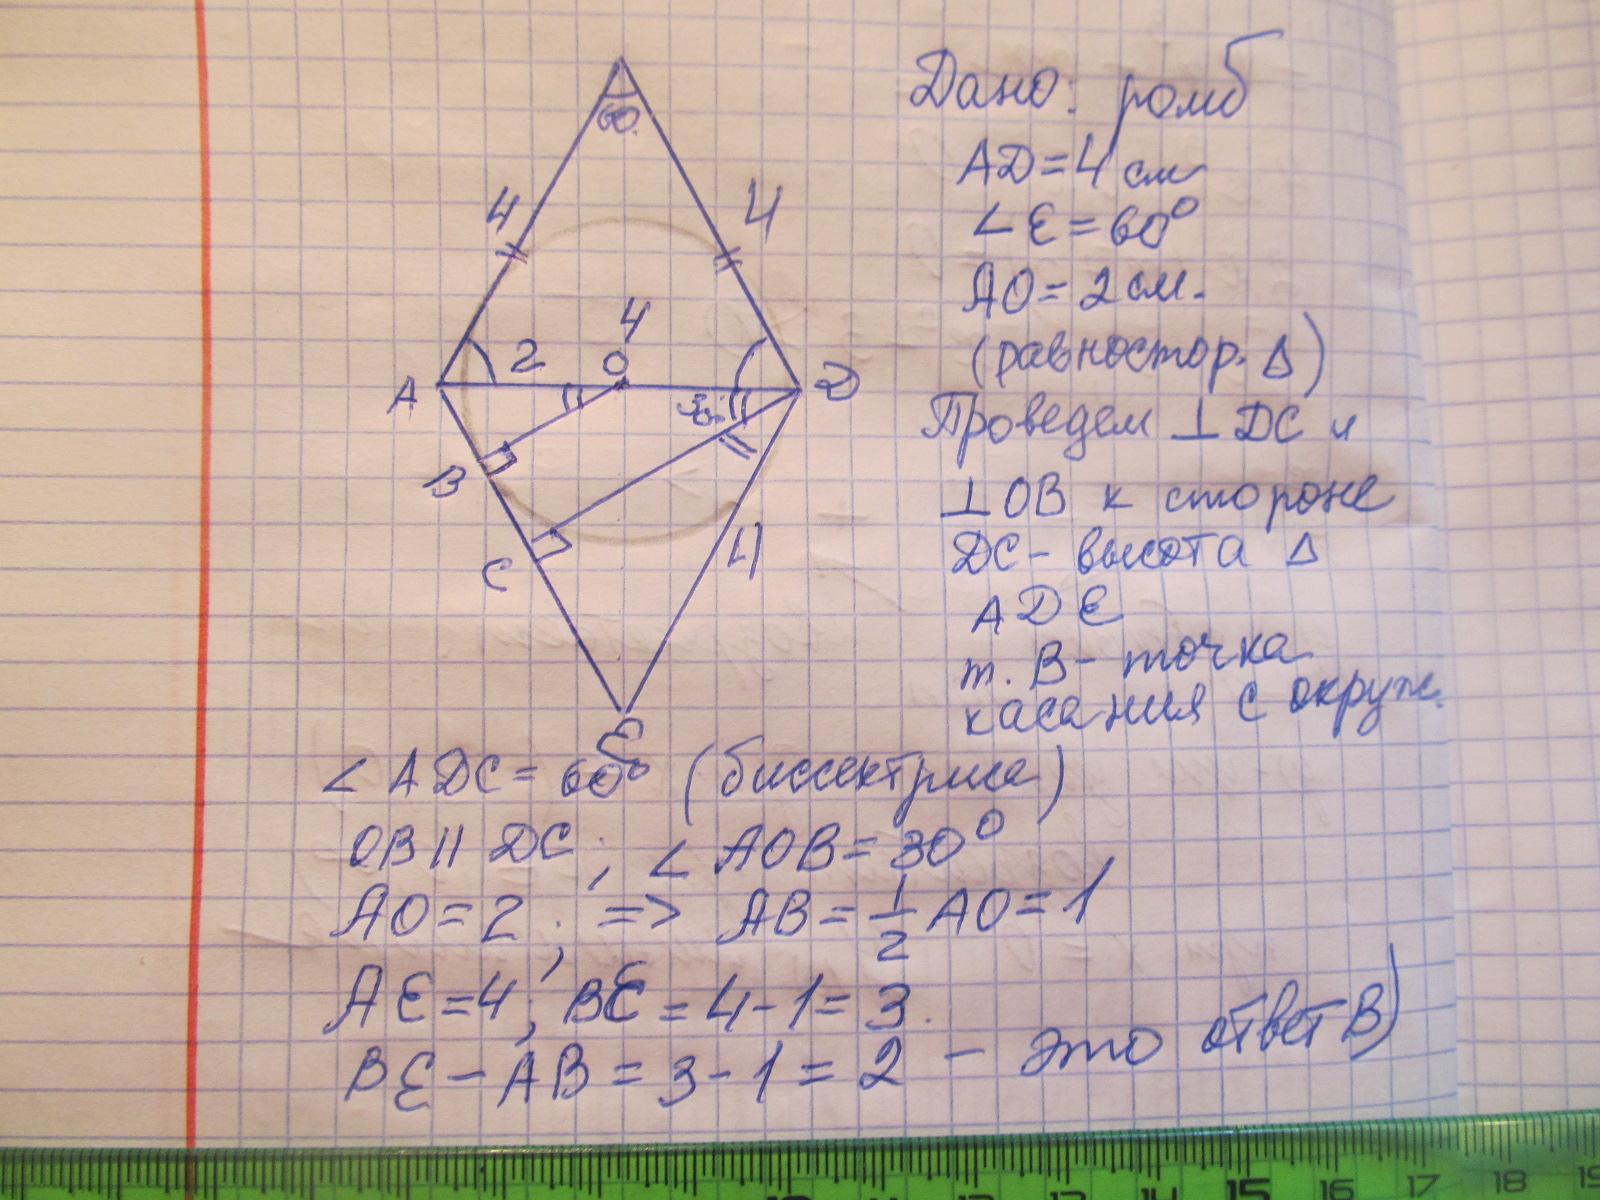 60°
4
4
4
2
O
A
30°
D
B
4
C
E
Дано: ромб
AD=4 см
∠E=60°
AO=2 см.
(равностор. Δ)
Проведем ⊥DC и
⊥OB к стороне
DC- высота Δ
ADE
т. B- точка
касания с окруж.
∠ADC=60° (биссектриса)
OB || DC; ∠AOB=30°
AO=2; => AB=1/2 AO=1
AE=4; BE=4-1=3.
BE-AB=3-1=2 - это ответ В)
13 14 15 16 17 18 19